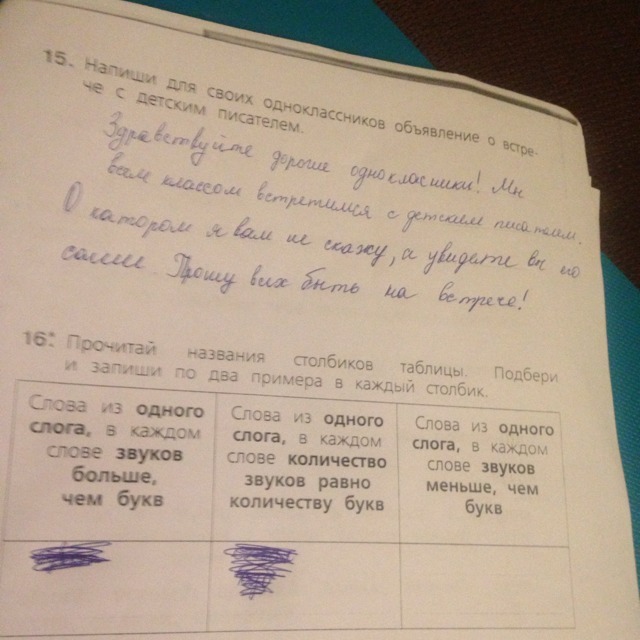 15. Напиши для своих одноклассников объявление о встре-
че с детским писателем.
Здравствуйте дорогие однокласники! Мы
всем классом встретимся с детским писателем.
О катором я вам не скажу, а увидете вы его
сами. Прошу всех быть на встрече!
16* Прочитай названия столбиков таблицы. Подбери
и запиши по два примера в каждый столбик.
Слова из одного
слога, в каждом
слове звуков
больше,
чем букв
Слова из одного
слога, в каждом
слове количество
звуков равно
количеству букв
Слова из одного
слога, в каждом
слове звуков
меньше, чем
букв